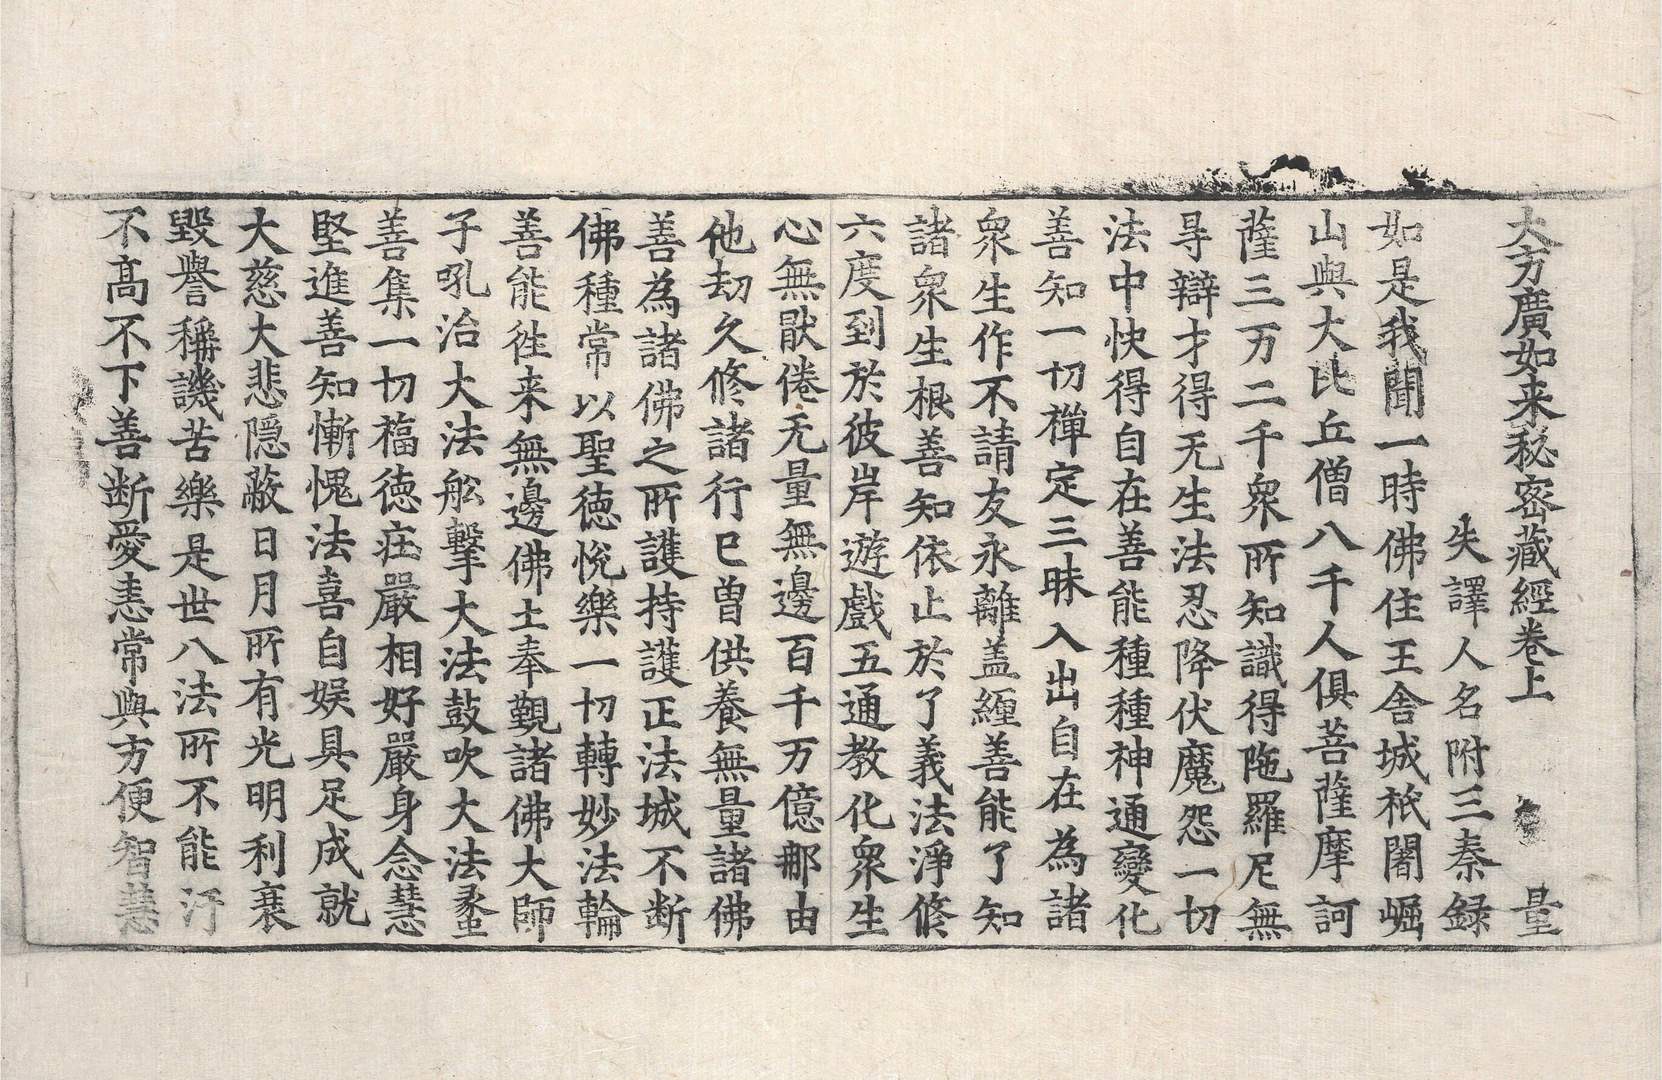 大方廣如来秘密藏經卷上 量
失譯人名附三秦録
如是我聞一時佛住王舍城祇闍崛
山與大比丘僧八千人俱菩薩摩訶
薩三万二千衆所知識得陁羅尼無
㝵辯才得无生法忍降伏魔怨一切
法中快得自在善能種種神通變化
善知一切禅定三昧入出自在為諸
衆生作不請友永離盖纏善能了知
諸衆生根善知依止於了義法淨修
六度到於彼岸遊戲五通教化衆生
心無猒倦无量無邊百千万億那由
他劫久修諸行已曾供養無量諸佛
善為諸佛之所護持護正法城不断
佛種常以聖徳悅樂一切轉妙法輪
善能徃来無邊佛土奉覲諸佛大師
子吼治大法舩擊大法鼓吹大法䗍
善集一切福徳庄嚴相好嚴身念慧
堅進善知慚愧法喜自娱具足成就
大慈大悲隠蔽日月所有光明利衰
毀譽稱譏苦樂是世八法所不能汙
不髙不下善断愛恚常與方便智慧